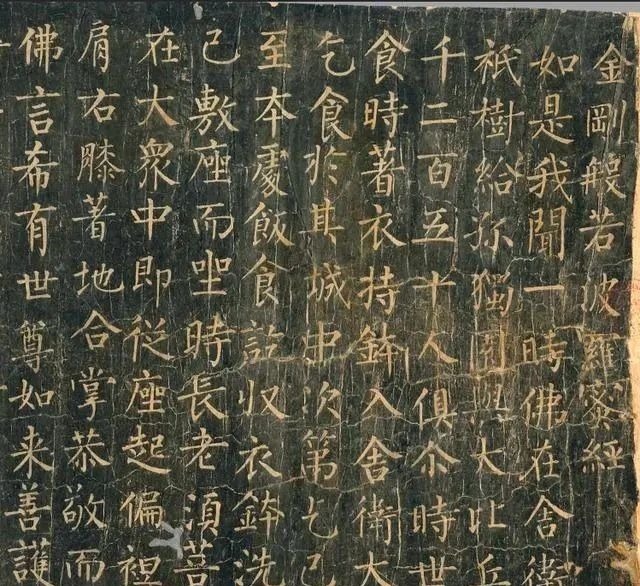 金剛般若波羅蜜經
如是我聞一時佛在舍衛
祇樹給孤獨園與大比丘
千二百五十人俱尒時世
食時著衣持鉢入舍衛大
乞食於其城中次第乞已
至本處飯食訖收衣鉢洗
已敷座而坐時長老須菩
在大衆中即従座起偏袒
肩右膝著地合掌恭敬而
佛言希有世尊如来善護